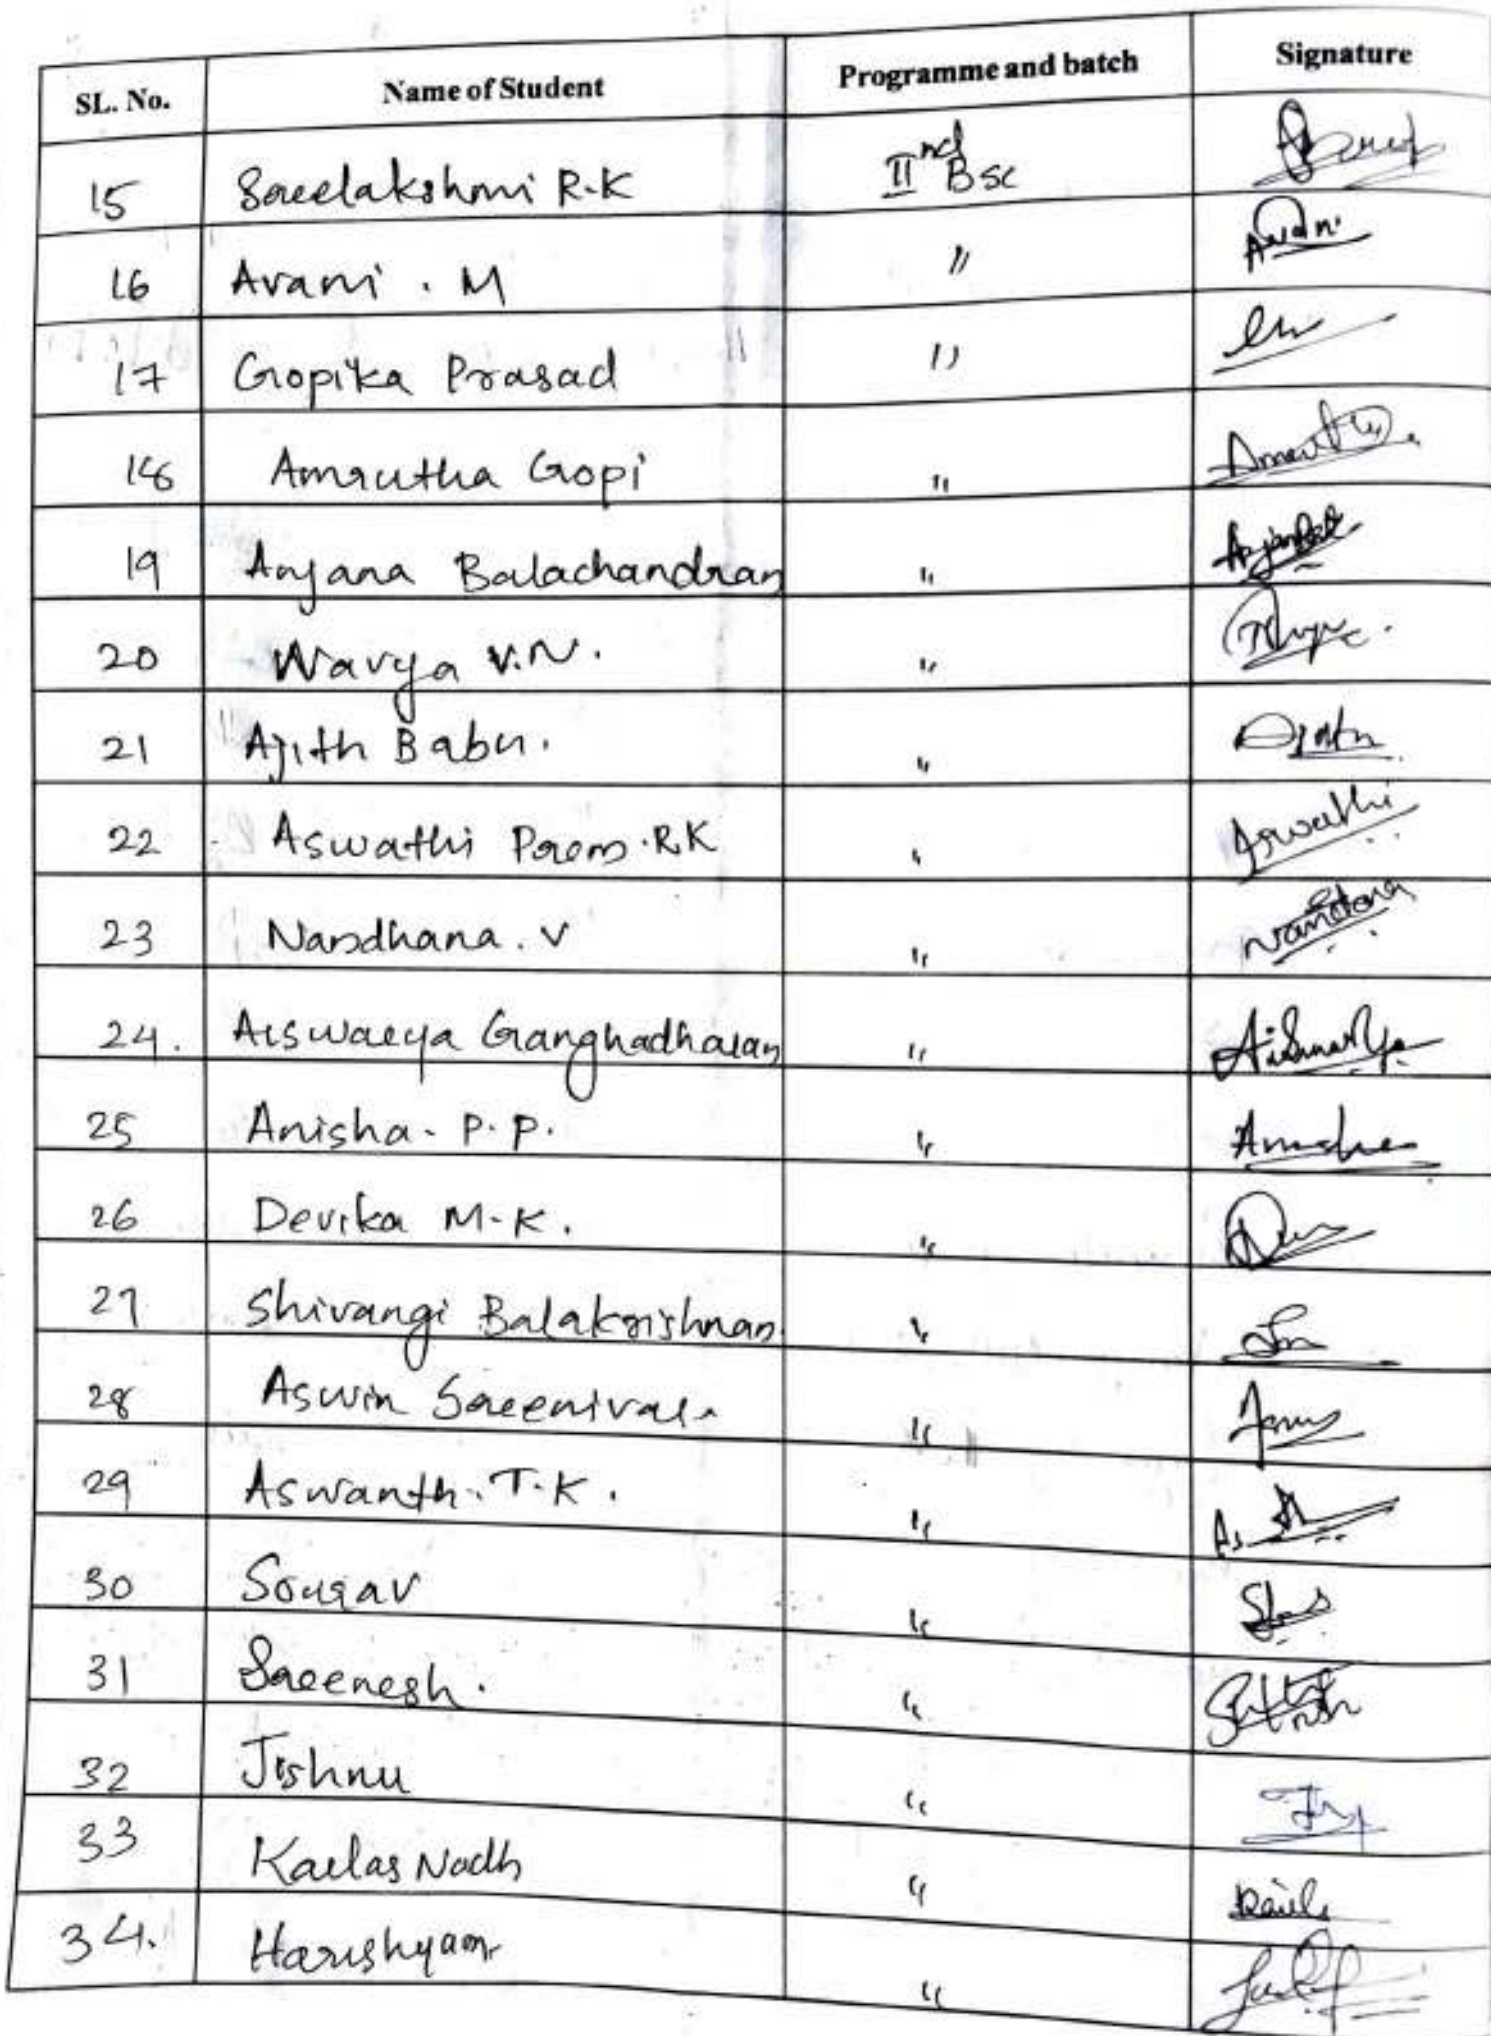 SL. No. Name of Student Programme and batch Signature
15 Sreelakshmi R.K IInd BSc
16 Avani . M " Avani
17 Gopika Prasad "
18 Amrutha Gopi " Amrutha
19 Anjana Balachandran " Anjana
20 Navya V.N. "
21 Ajith Babu. " Ajith
22 Aswathi Prem.RK " Aswathi
23 Nandhana . V " Nandana
24. Aiswarya Ganghadharan " Aishwarya
25 Anisha - P. P. " Anisha
26 Devika M-K. "
27 Shivangi Balakrishnan "
28 Aswin Sreenivas "
29 Aswanth . T. K . "
30 Sourav "
31 Sreenesh . "
32 Jishnu "
33 Kailas Nadh "
34. Harishyam "